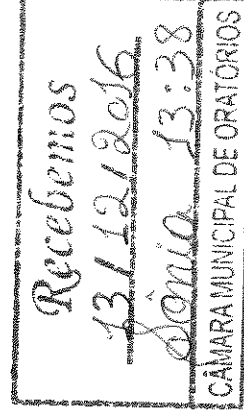 Recebemos
13/12/2016
Sônia 13:38
CÂMARA MUNICIPAL DE ORATÓRIOS